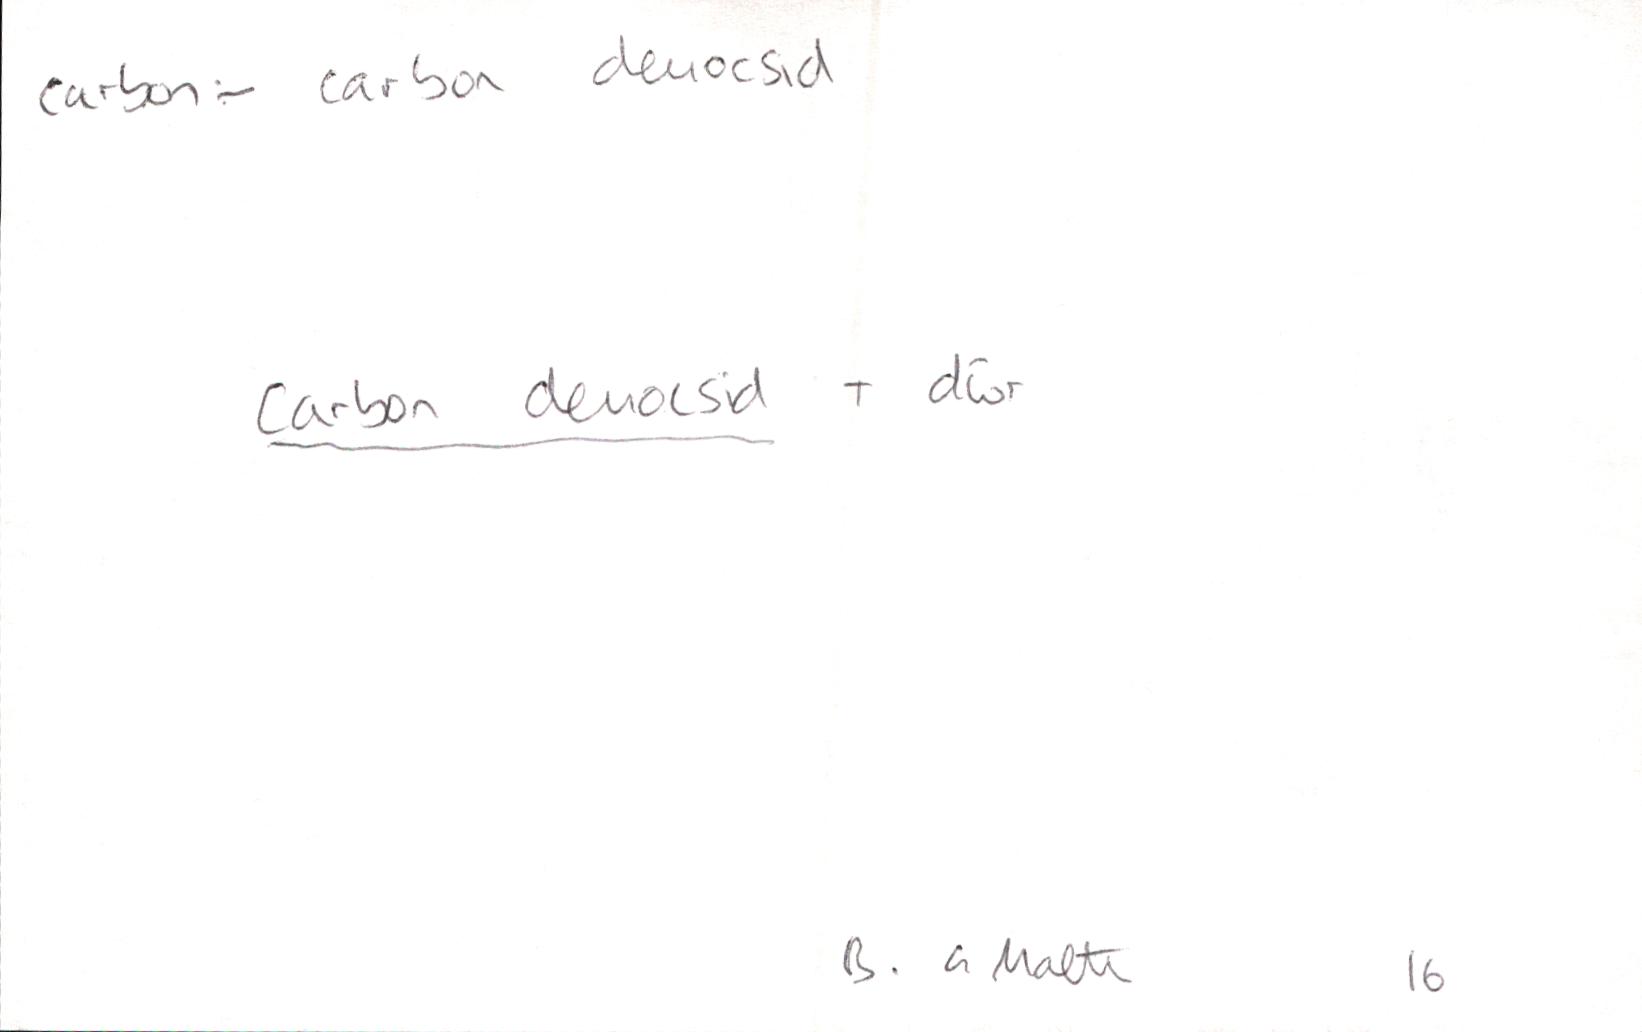 carbon:- carbon deuocsid
Carbon deuocsid + dŵr
B. a Maeth 16